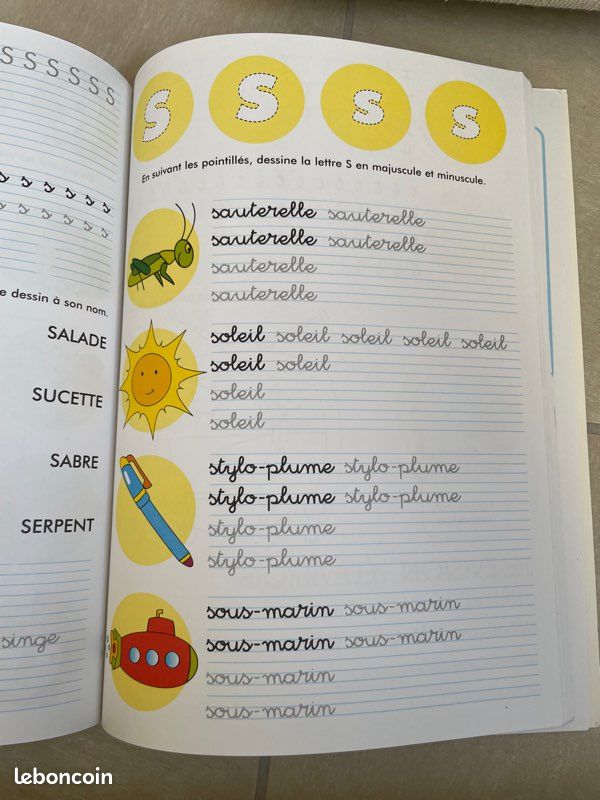 S S S S S S S
s s s s s s
s s s s s s
e dessin à son nom.
SALADE
SUCETTE
SABRE
SERPENT
singe
S S s s
En suivant les pointillés, dessine la lettre S en majuscule et minuscule.
sauterelle sauterelle
sauterelle sauterelle
sauterelle
sauterelle
soleil soleil soleil soleil soleil
soleil soleil
soleil
soleil
stylo-plume stylo-plume
stylo-plume stylo-plume
stylo-plume
stylo-plume
sous-marin sous-marin
sous-marin sous-marin
sous-marin
sous-marin
leboncoin